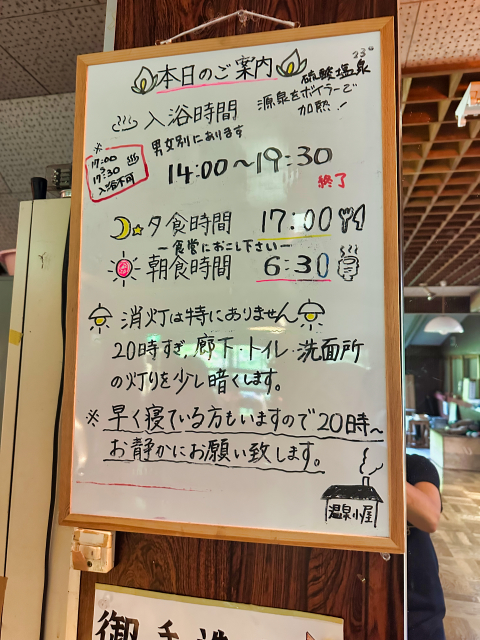 本日のご案内
23℃
硫酸塩泉
源泉をボイラーで
加熱!
入浴時間
男女別にあります
※
17:00
17:30
入浴不可
14:00~19:30
終了
夕食時間 17:00
ー食堂におこし下さいー
朝食時間 6:30
消灯は特にありません
20時すぎ、廊下・トイレ・洗面所
の灯りを少し暗くします。
※早く寝ている方もいますので20時~
お静かにお願い致します。
温泉小屋
御手洗